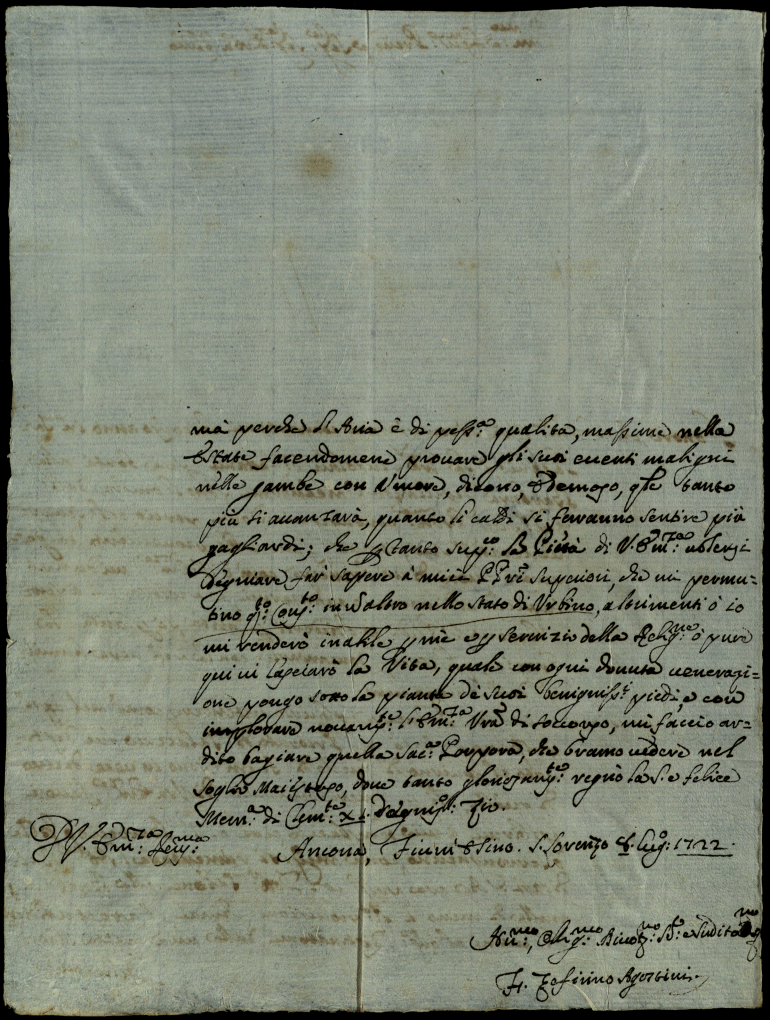 mà perche l'Aria è di pess.ª qualita, massime nella
Estate facendomene prouare gli suoi euenti maligni
nelle gambe con Vmore,
più si auanzarà, quanto li caldi si faranno sentire più
gagliardi; che tanto sup.co la Pietà di V. Em.za
degniare far sapere à miei PP.ri Superiori, che mi permu-
tino q.to Con.to in un altro nello Stato di Vrbino, altrimenti ò io
mi renderò inabile p me e p seruizio della Relig.ne ò pure
qui vi lasciarò la Vita, quale con ogni douuta uenerazi-
one pongo sotto le piante de suoi benigniss.i piedi, e con
implorare nouam.te l'Em.za Vrã di soccorso, mi faccio ar-
dito bagiare quella Sac.ª Porpora, che bramo uedere nel
Soglio Maestoso, doue tanto gloriosam.te regnò la S. e felice
Mem.ª di Clem.te XI. Degniss.º Zio.
D V. Em.za Reu.ma
Ancona, S. Lorenzo 8. Lug.º 1722.
Hu.mo, Oblig.mo Diuot.mo S.re e Sudito
F. Zefirino Agostini